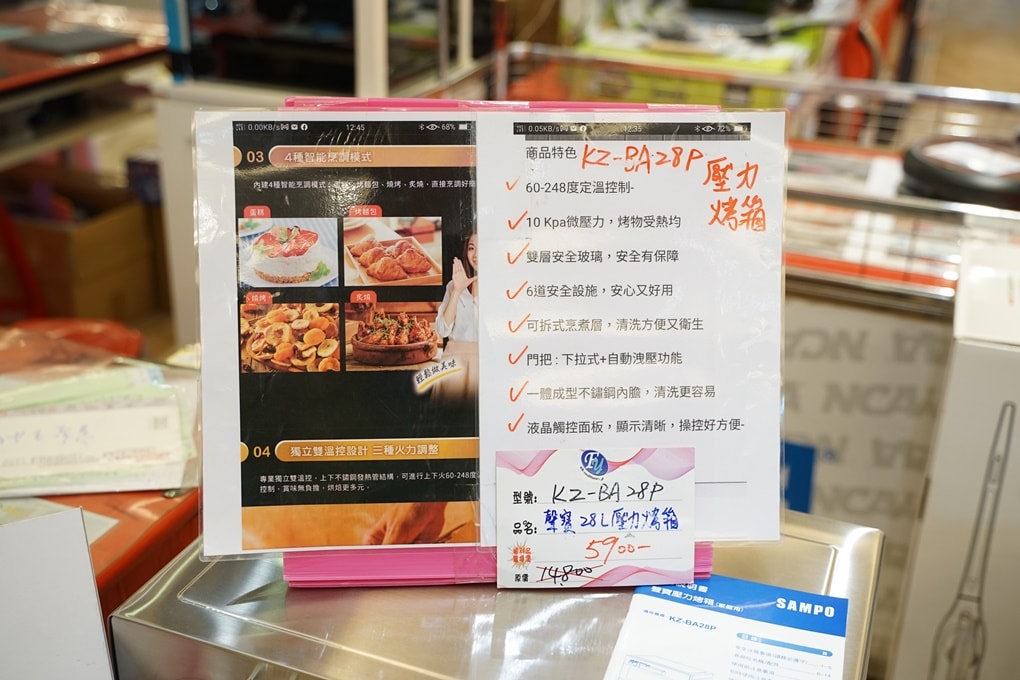 0.00KB/s 12:45 68%
03 4種智能烹調模式
蛋糕
烤麵包
燒烤
炙燒
輕鬆做美味
04 獨立雙溫控設計 三種火力調整
專業獨立雙溫控,上下不鏽鋼發熱管結構,可進行上下火60-248度
控制,賞味無負擔,烘焙更多元。
0.05KB/s 12:35 72%
商品特色 KZ-BA28P 壓力
烤箱
60-248度定溫控制-
10 Kpa微壓力,烤物受熱均
雙層安全玻璃,安全有保障
6道安全設施,安心又好用
可拆式烹煮層,清洗方便又衛生
門把:下拉式+自動洩壓功能
一體成型不鏽鋼內膽,清洗更容易
液晶觸控面板,顯示清晰,操控好方便-
FU
型號: KZ-BA28P
品名: 聲寶 28L壓力烤箱
5900-
原價 14,800
SAMPO
聲寶壓力烤箱(家庭用)
適用機種 KZ-BA28P
NCAA